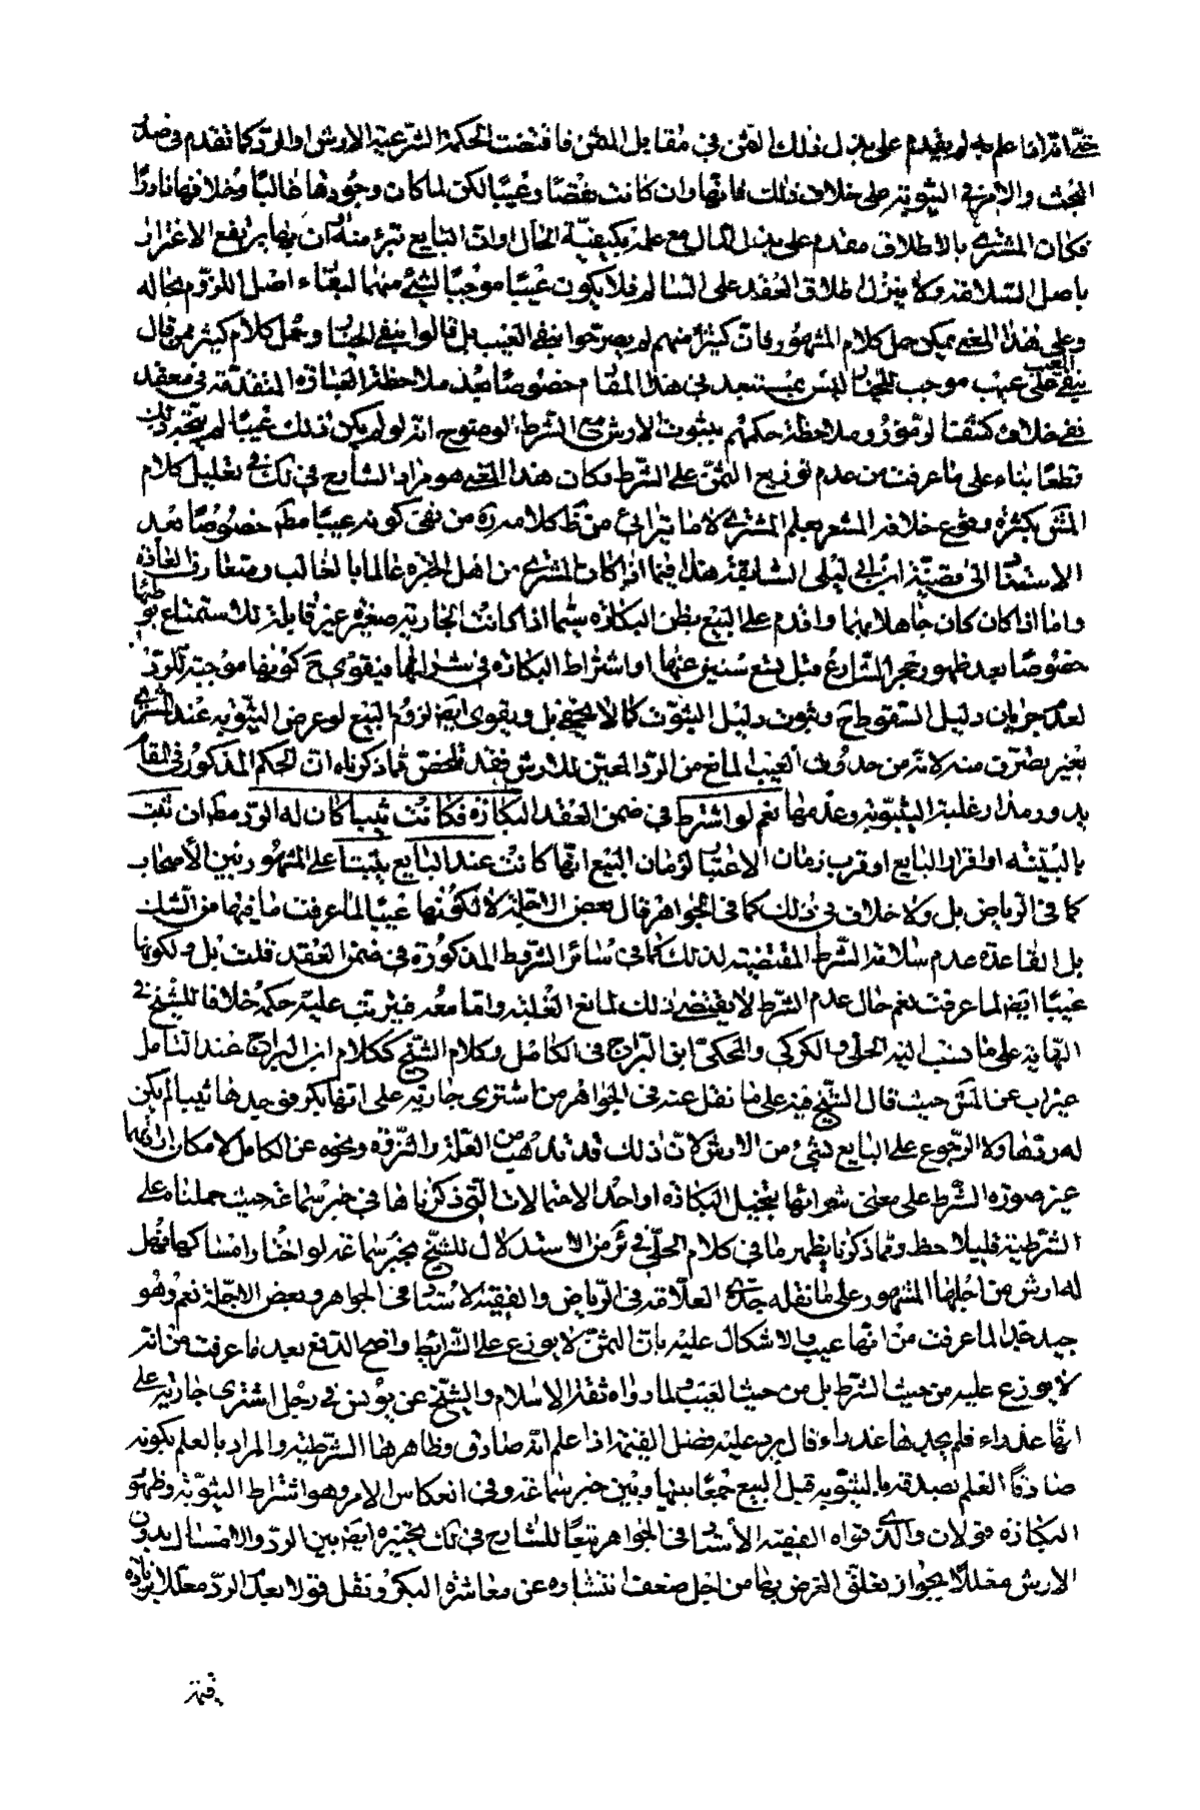 حتى انه اذا علم به لم يقدم على بذل ذلك الثمن في مقابل المثمن فاقتضت الحكمة الشرعية الارش او الرد كما تقدم في صدر
المبحث والامر في الثيوبة على خلاف ذلك فانها وان كانت نقصا وعيبا لكن لما كان وجودها غالبا وخلافها نادرا
فكان المشتري بالاطلاق مقدم على بذل المال مع علمه بكيفية الحال او ان البايع تبرء منه لان بها يرتفع الاغترار
باصل السلامة ولا ينزل اطلاق العقد على السالم فلا يكون عيبا موجبا لشئ منهما لبقاء اصل اللزوم بحاله
وعلى هذا المعنى يمكن حمل كلام المشهور فان كثيرا منهم لم يصرحوا بنفي العيب بل قالوا بنفي الخيار وحمل كلام كثير ممن قال
بنفي العيب على عيب موجب للخيار ليس بمستبعد في هذا المقام خصوصا بعد ملاحظة العبارة المتقدمة في معقد
نفي خلاف كشفنا لو نوزع وملاحظة حكمهم بثبوت الارش مع الشرط لوضوح انه لو لم يكن ذلك عيبا لم يتخير ذلك
قطعا بناء على ما عرفت من عدم توزيع الثمن على الشرط فكان هذا المعنى هو مراد الشارح في لك في تعليل كلام
المتن بكثرة وقوع خلافه المشعر بعلم المشتري لا ما يترائى من ظ كلامه ره من نفي كونه عيبا مطم خصوصا بعد
الاستناد الى قضية ابن ابي ليلى السابقة هذا فيما اذا كان المشتري من اهل الخبرة عالما بالغالب ومتعارف العادة
واما اذا كان كان جاهلا بهما واقدم على البيع بظن البكارة سيما اذا كانت الجارية صغيرة غير قابلة للاستمتاع بوطئها
خصوصا بعد ظهور حجر الشارع قبل تسع سنين عنها او اشتراط البكارة في شرائها فيقوى ح كونها موجبة للرد
لعدم جريان دليل السقوط ح وثبوت دليل الثبوت كما لا يخفى بل ويقوى ايضا لزوم البيع لو عرض الثيوبة عند المشتري
بغير تصرف منه لانه من حدوث العيب المانع من الرد المعين للارش فقد تلخص مما ذكرناه ان الحكم المذكور في المقام
يدور مدار غلبة الثيبوبة وعدمها نعم لو اشترط في ضمن العقد البكارة فكانت ثيبا كان له الرد مطم ان ثبت
بالبينة او اقرار البايع او قرب زمان الاختبار لزمان البيع انها كانت عند البايع ثيبا على المشهور بين الأصحاب
كما في الرياض بل ولا خلاف في ذلك كما في الجواهر قال بعض الاجلة لا لكونها عيبا لما عرفت ما فيها من الشك
بل لقاعدة عدم سلامة الشرط المقتضية لذلك كما في سائر الشروط المذكورة في ضمن العقد قلت بل ولكونها
عيبا ايضا لما عرفت نعم حال عدم الشرط لا يقتضي ذلك لمانع الغلبة واما معه فيترتب عليه حكمه خلافا للشيخ في
النهاية على ما نسب اليه الحلي والكركي والمحكي ابن البراج في الكامل وكلام الشيخ ككلام ابن البراج عند التأمل
غير اب عن المتن حيث قال الشيخ فيه على ما نقل عنه في الجواهر من اشترى جارية على انها بكر فوجدها ثيبا لم يكن
له ردها ولا الرجوع على البايع بشئ من الارش لان ذلك قد تذهب من العلة والنزوة ونحوه عن الكامل لامكان ارادتهما
غير صورة الشرط على معنى شرائها بتخيل البكارة او احد الاحتمالات التي ذكرناها في خبر سماعة حيث حملناه على
الشرطية فليلاحظ ومما ذكرنا يظهر ما في كلام الحلي في ئر من الاستدلال للشيخ بخبر سماعة لو اختار امساكها فهل
له ارش من اجلها المشهور على ما نقله جدي العلامة في الرياض والفقيه الاستاد في الجواهر وبعض الاجلة نعم وهو
جيد جدا لما عرفت من انها عيب والاشكال عليه بان الثمن لا يوزع على الشرائط واضح الدفع بعد ما عرفت من انه
لا يوزع عليه من حيث الشرط بل من حيث العيب ولما رواه ثقة الاسلام والشيخ عن يونس في رجل اشترى جارية على
انها عذراء فلم يجدها عذراء قال يرد عليه فضل القيمة اذا علم انه صادق وظاهرها الشرطية والمراد بالعلم بكونه
صادقا العلم بصدقه بالثيوبة قبل البيع جمعا بينها وبين خبر سماعة وفي انعكاس الامر وهو اشتراط الثيوبة وظهور
البكارة قولان والذي قواه الفقيه الأستاد في الجواهر تبعا للشارح في لك تخييره ايضا بين الرد والامساك بدون
الارش معللا بجواز تعلق الغرض بها من اجل ضعف انتشاره عن معاشرة البكر ونقل قولا بعدم الرد معللا بزيادة
قيمة